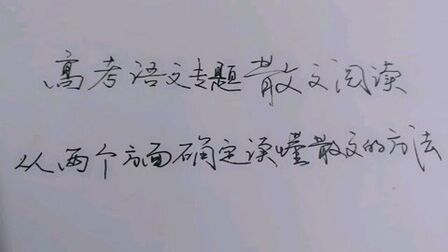 高考语文专题散文阅读
从两个方面确定读懂散文的方法